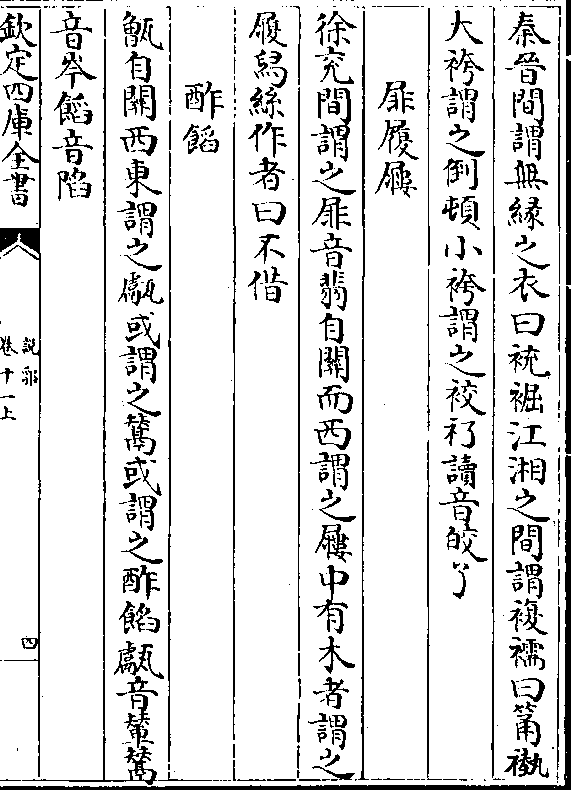 秦晉間謂無縁之衣曰䘪裾江湘之間謂複襦曰筩褹
大袴謂之倒頓小袴謂之䘨衦讀音皎了
屝履屨
徐兖間謂之屝音翡自關而西謂之屨中有木者謂之
履舄絲作者曰不偕
酢餡
甑自關西東謂之甗或謂之鬵或謂之酢餡甗音輦鬵
音岑餡音陷
欽定四庫全書
說郛
卷十一上
四